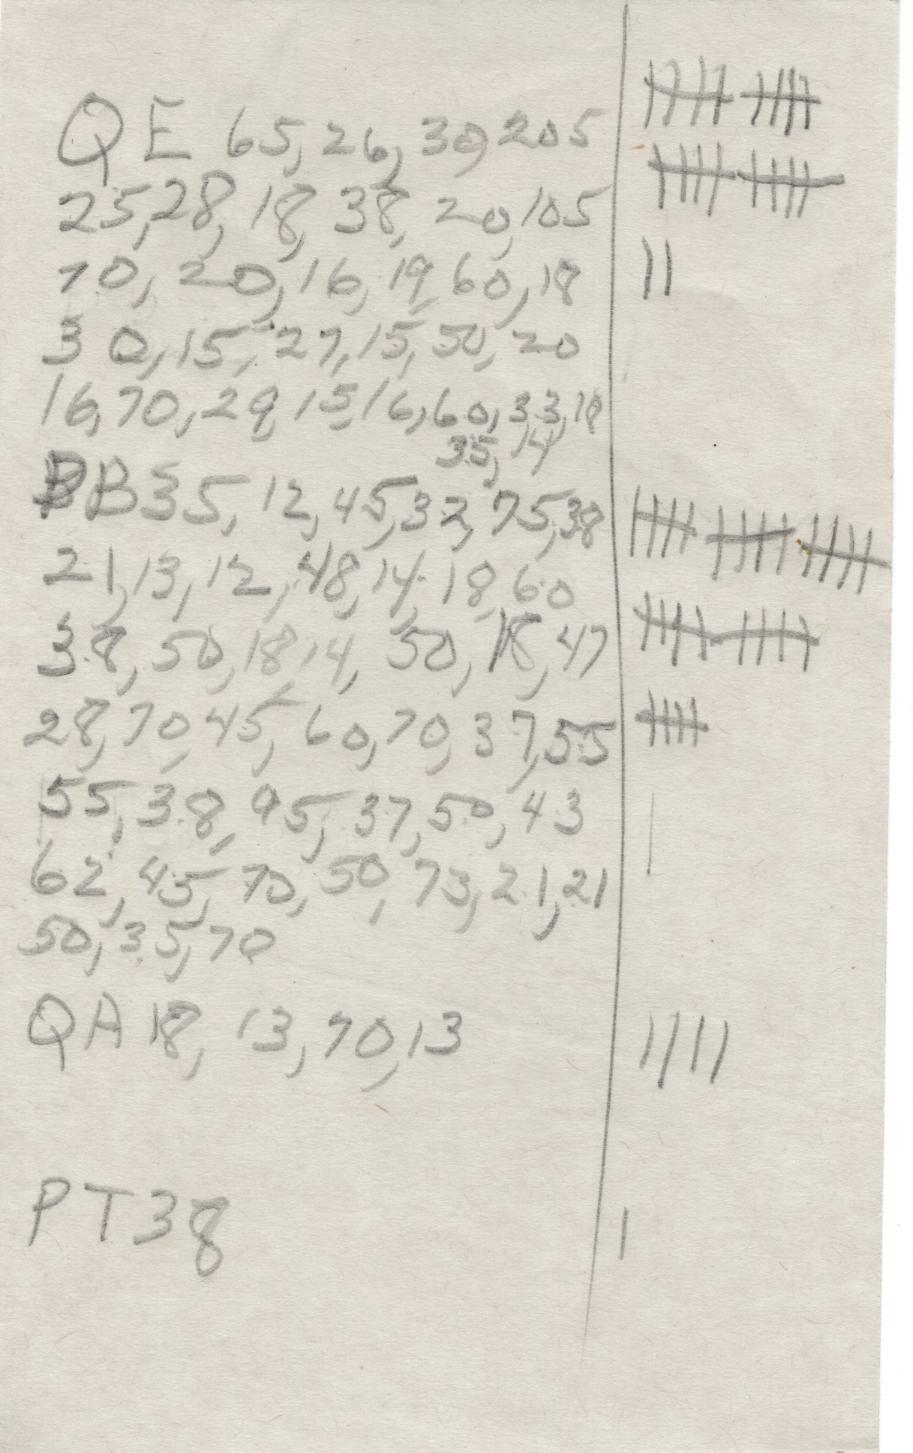 QE 65, 26, 30, 205
25, 28, 18, 38, 20, 105
70, 20, 16, 19, 60, 18
30, 15, 27, 15, 50, 20
16, 70, 29, 15, 16, 60, 33, 18
35, 14
BB 35, 12, 45, 32, 75, 38
21, 13, 12, 48, 14, 18, 60
38, 50, 18, 14, 50, 18, 47
28, 70, 45, 60, 70, 37, 55
55, 38, 95, 37, 50, 43
62, 45, 70, 50, 73, 21, 21
50, 35, 70
QA 18, 13, 70, 13
PT 38